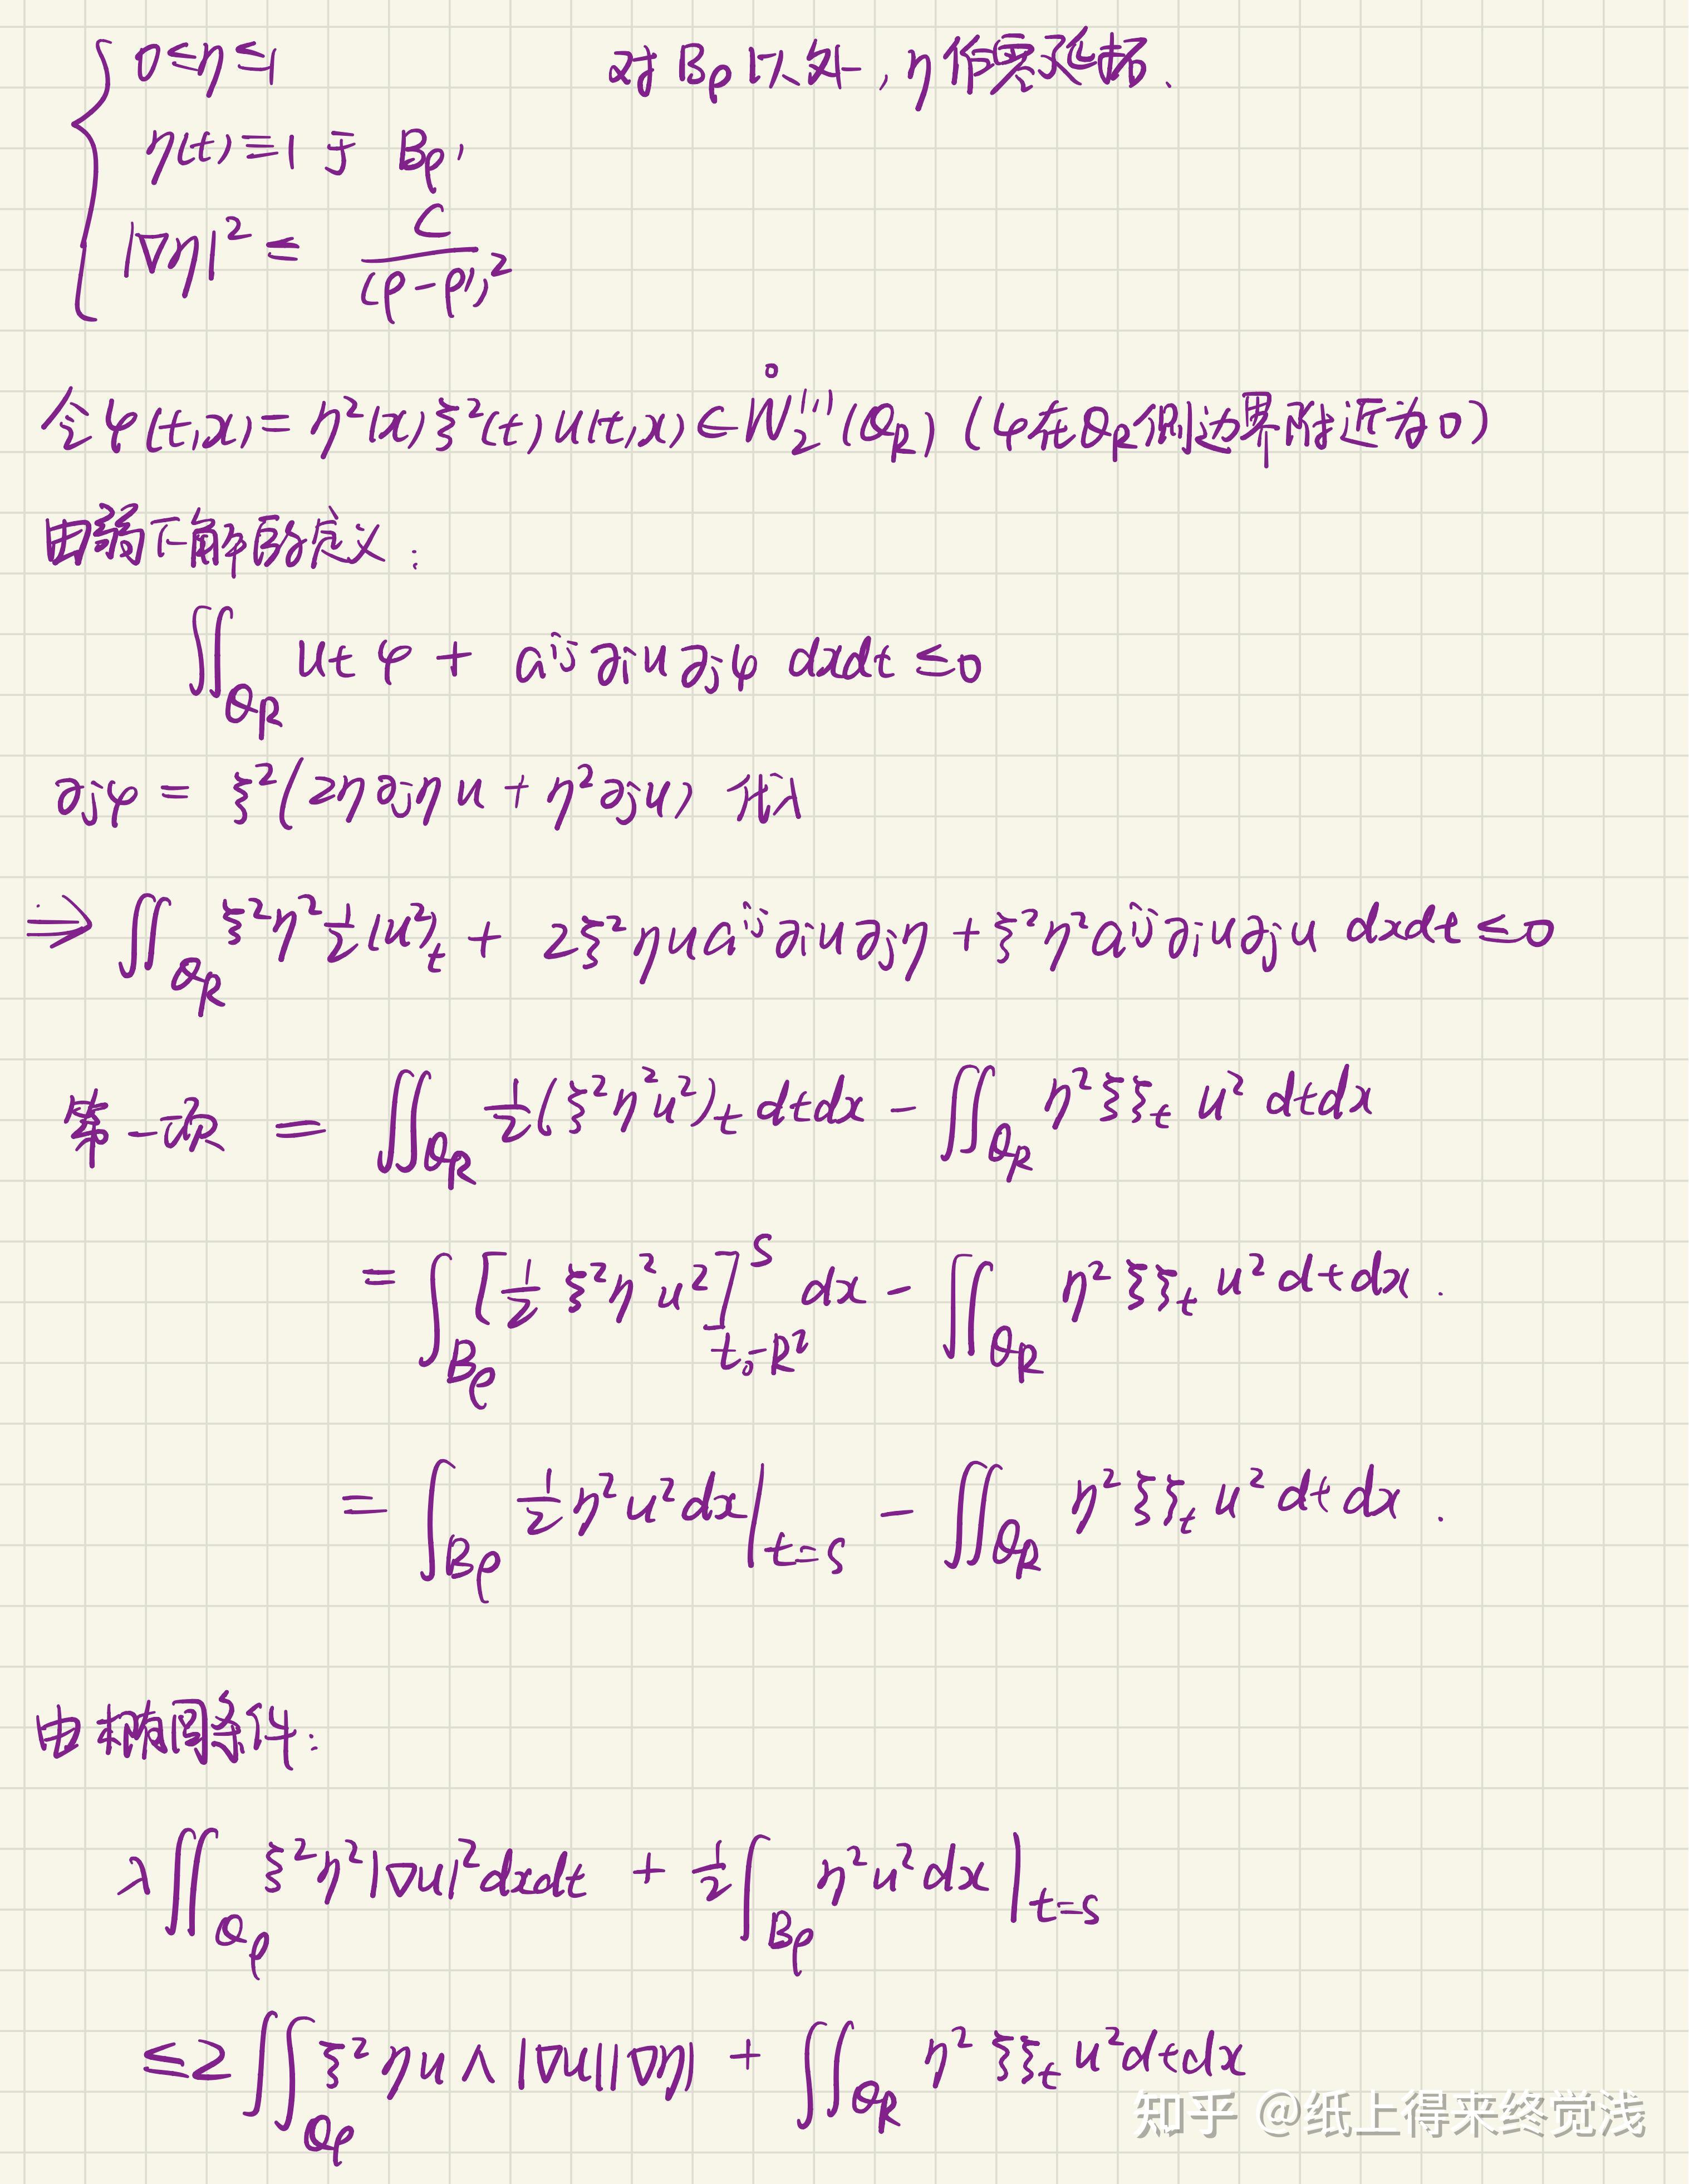 0≤η≤1 对 Bρ 以外, η作零延拓.
η(t)≡1 于 Bρ'
|∇η|² ≤ C/(ρ-ρ')²
令 φ(t,x) = η²(x)ξ²(t)u(t,x) ∈ W̊₂^{1,1}(Q_R) (φ在Q_R侧边界附近为0)
由弱下解的定义:
∬_{Q_R} u_t φ + a^{ij}∂_i u ∂_jφ dxdt ≤0
∂_jφ = ξ²(2η∂_jη u + η²∂_j u) 代入
⇒ ∬_{Q_R} ξ²η² 1/2 (u²)_t + 2ξ²ηu a^{ij}∂_i u ∂_jη + ξ²η²a^{ij}∂_i u ∂_j u dxdt ≤0
第一项 = ∬_{Q_R} 1/2 (ξ²η²u²)_t dtdx - ∬_{Q_R} η²ξξ_t u² dtdx
= ∫_{Bρ} [1/2 ξ²η²u²]^s_{t₀-R²} dx - ∬_{Q_R} η²ξξ_t u² dtdx.
= ∫_{Bρ} 1/2 η²u²dx|_{t=s} - ∬_{Q_R} η²ξξ_t u² dtdx.
由椭圆条件:
λ∬_{Qρ} ξ²η²|∇u|²dxdt + 1/2 ∫_{Bρ} η²u²dx|_{t=s}
≤2∬_{Qρ} ξ²ηuΛ|∇u||∇η| + ∬_{Q_R} η²ξξ_t u²dtdx
知乎 @纸上得来终觉浅